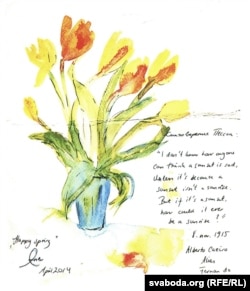 "I don't know how anyone
can think a sunset is sad,
Unless it's because a
sunset isn't a sunrise.
But if it's a sunset,
how could it ever
be a sunrise?"
8. 1915
Alberto Caeiro
"Happy Spring"
April 2014
www.svaboda.org (RFE/RL)